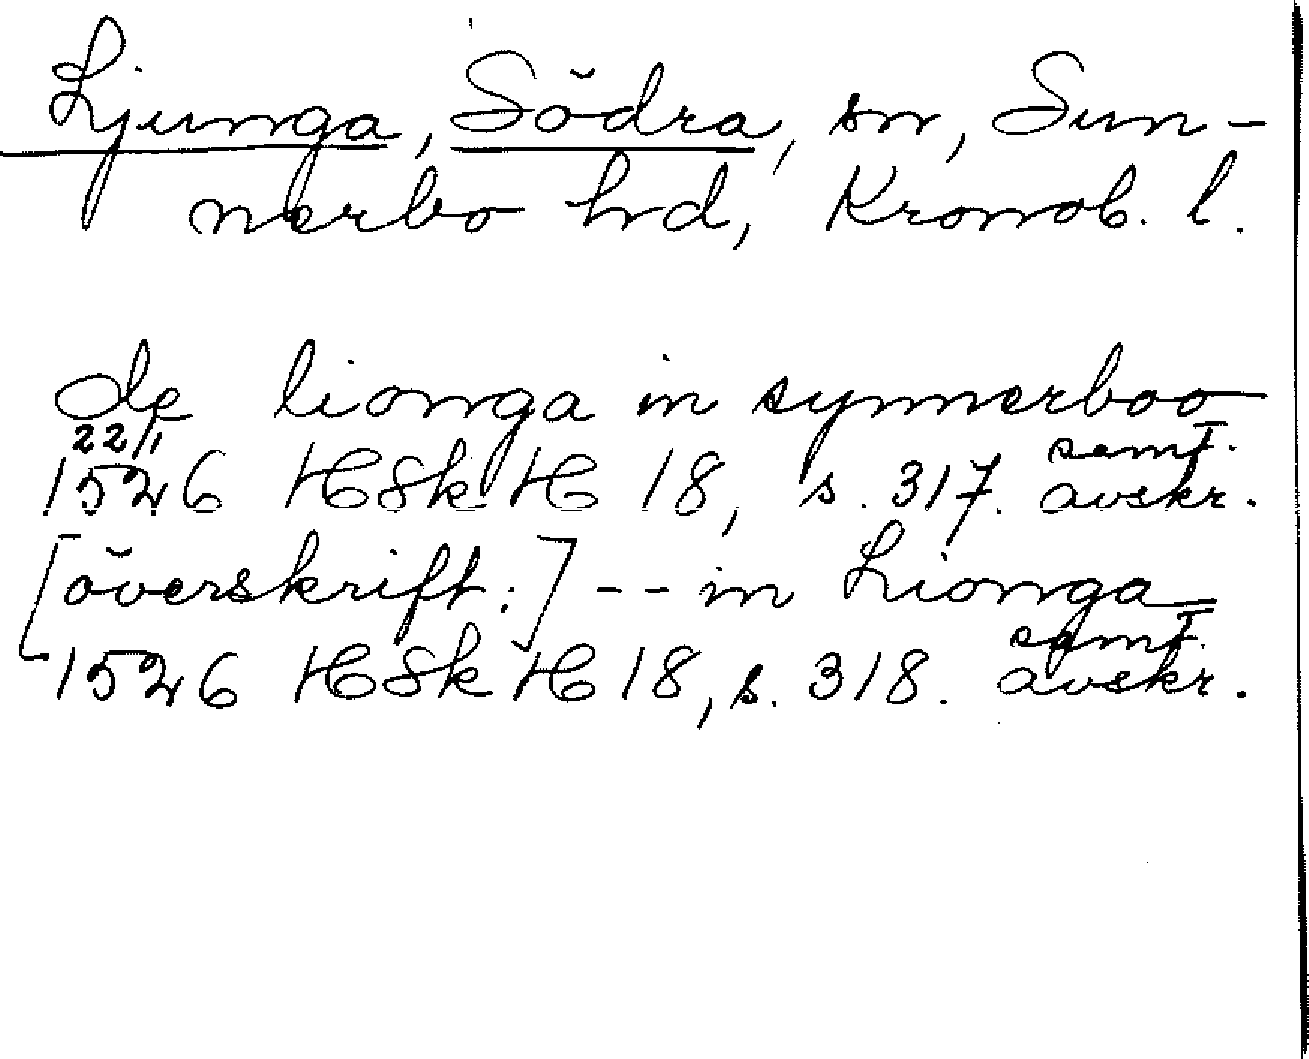 Ljunga, Södra, sn, Sun-
nerbo hrd, Kronob. l.
de lionga in synnerboo
22/1
1526 HSkH 18, s. 317. samt. avskr.
[överskrift:] -- in Lionga
1526 HSkH 18, s. 318. samt. avskr.